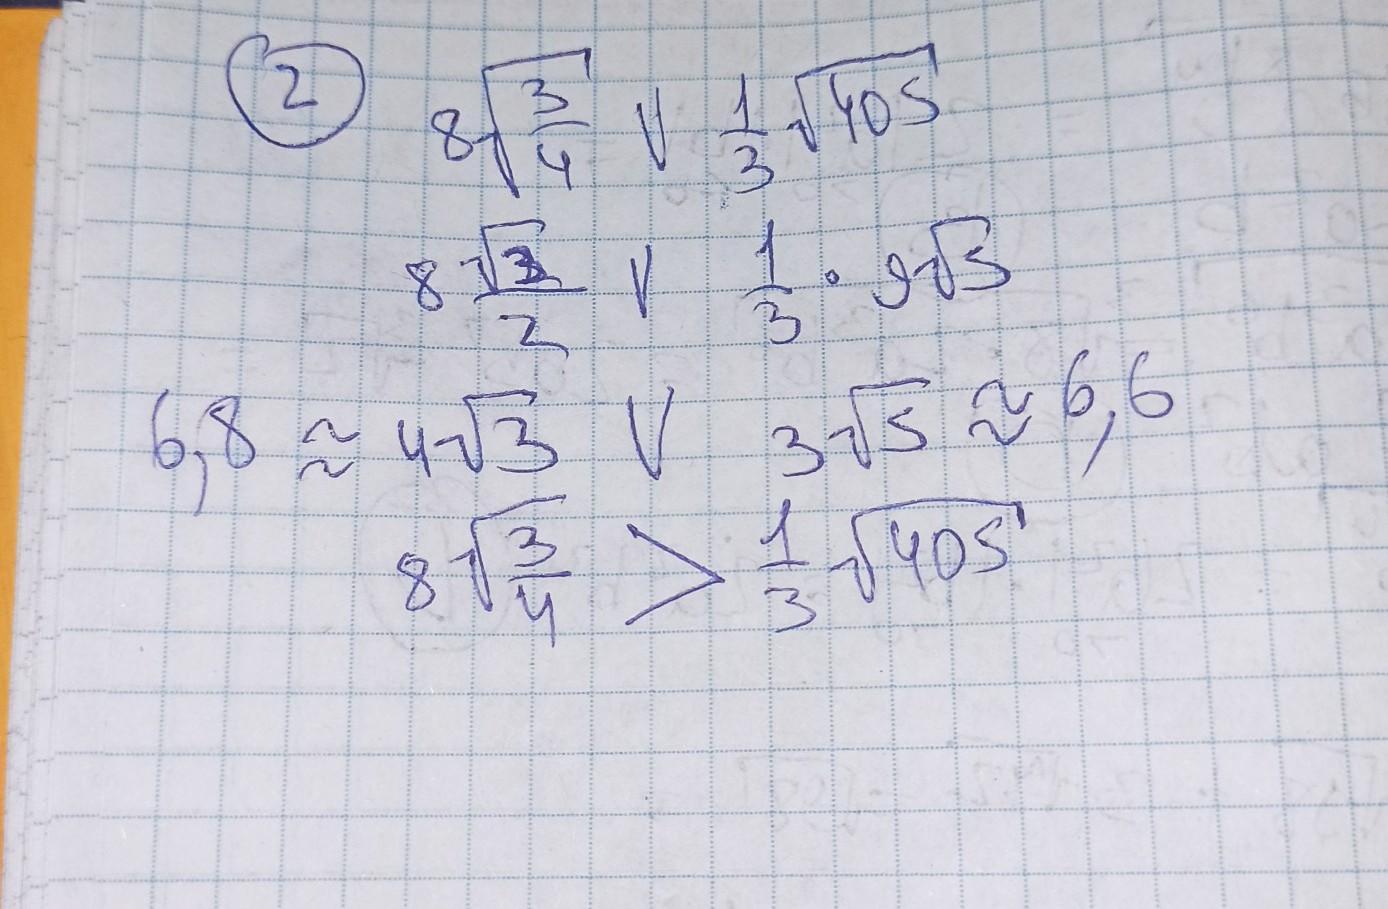 2 8√(3/4) V 1/3 √405
8 √3/2 V 1/3 · 9√5
6,8 ≈ 4√3 V 3√5 ≈ 6,6
8√(3/4) > 1/3 √405